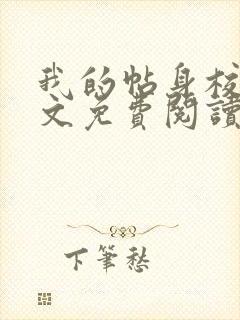 我的帖身校
文免費閱讀
下筆愁